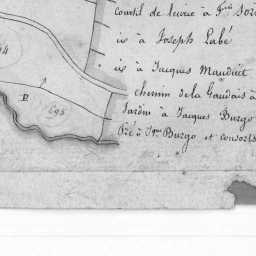 Courtil de leurie à Fr.
ix à Joseph Labé
ix à Jacques Mauduit
chemin de la Gaudais à
Jardin à Jacques Burgo
Pré à Jn Burgo et consorts
94
P
D
695